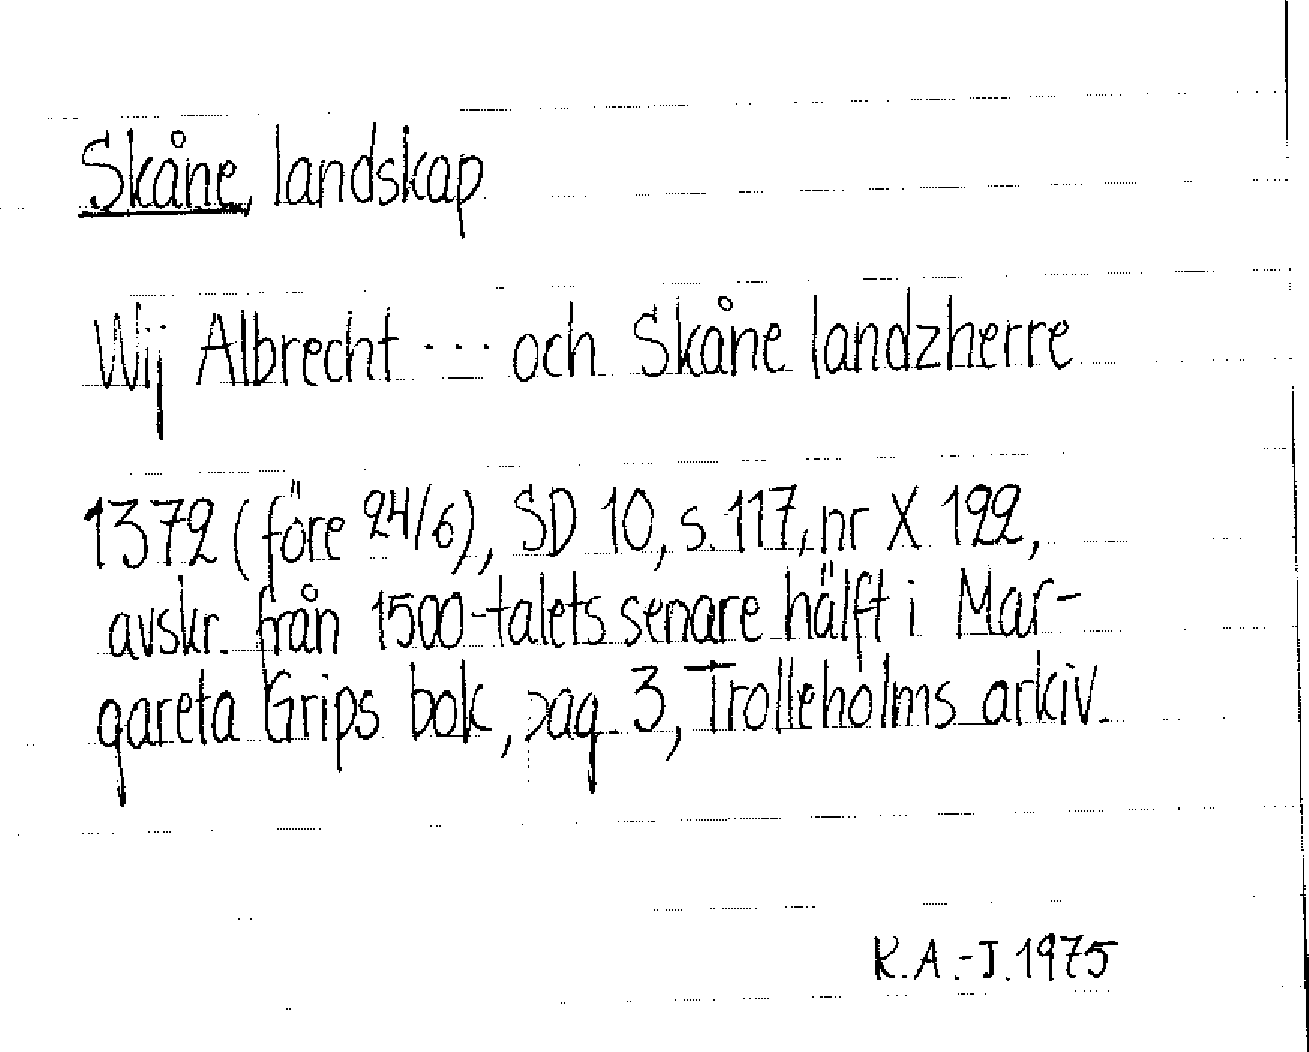 Skåne, landskap
Wij Albrecht --- och Skåne landzherre
1372 (före 24/6), SD 10, s. 117, nr X 122,
avskr. från 1500-talets senare hälft i Mar-
gareta Grips bok, pag. 3, Trolleholms arkiv.
K.A.-J. 1975